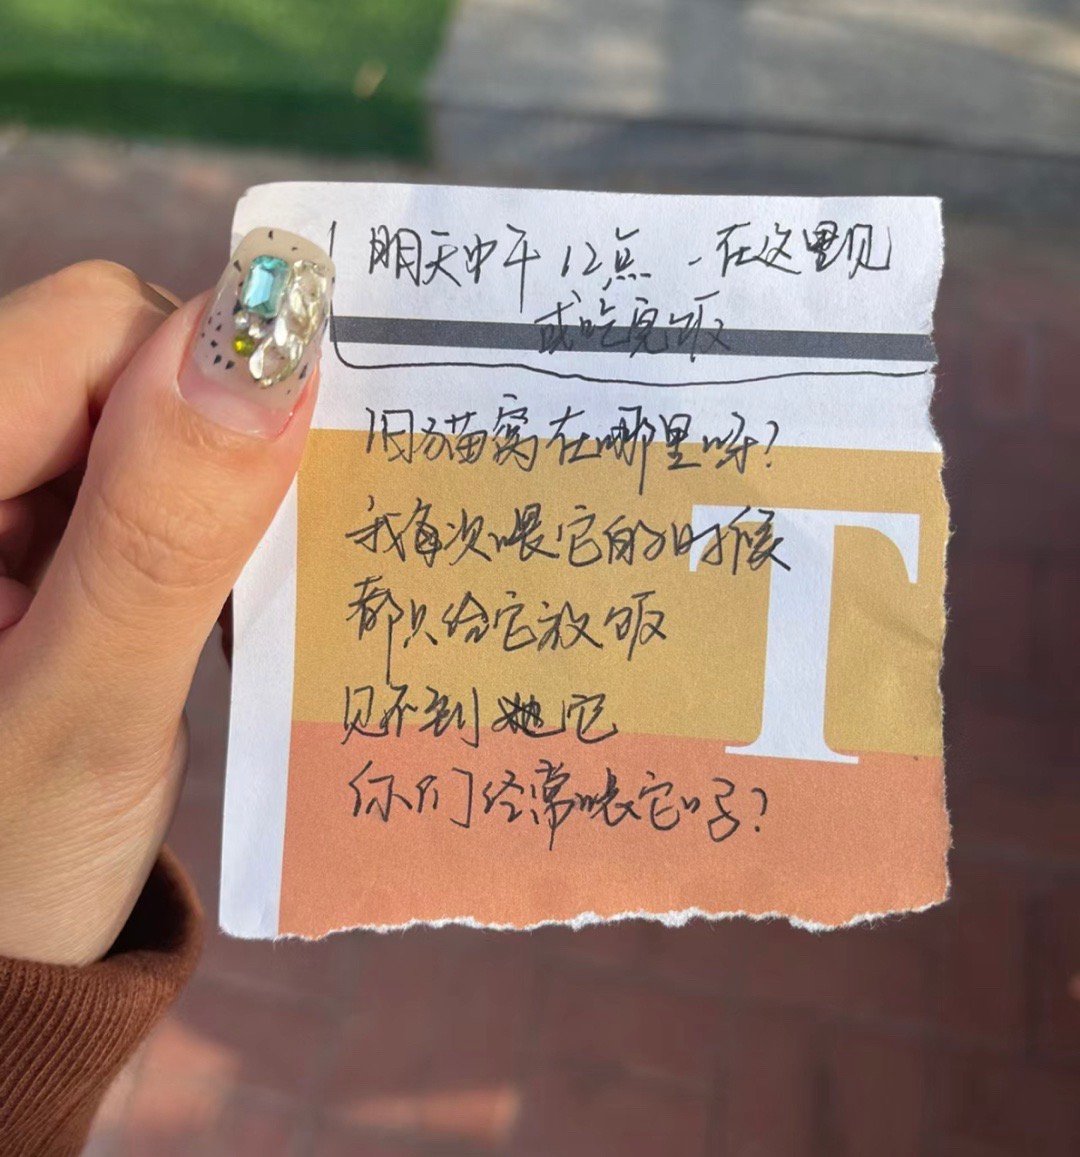 明天中午12点、在这里见
或吃完饭
旧猫窝在哪里呀?
我每次喂它的时候
都只给它放饭
见不到它
你们经常喂它吗?
T